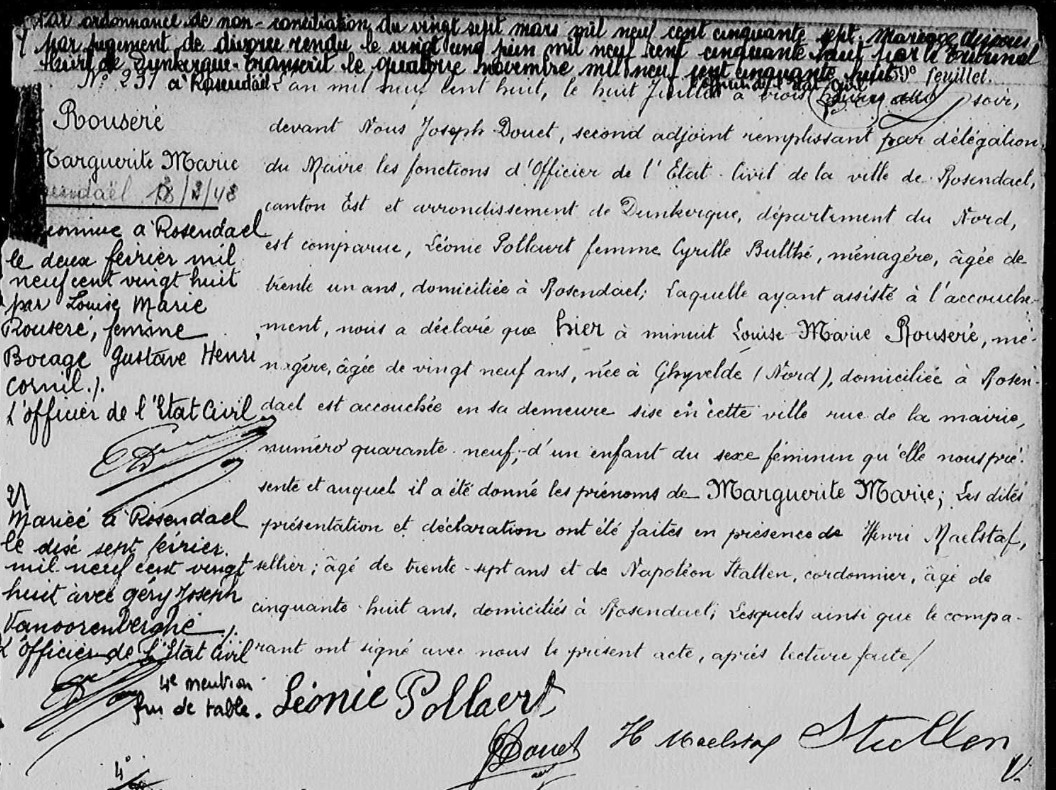 Par ordonnance de non-conciliation du vingt sept mars mil neuf cent cinquante sept. Mariage dissous
par jugement de divorce rendu le vingt cinq juin mil neuf cent cinquante sept par le Tribunal
de Dunkerque. transcrit le quatorze novembre mil neuf cent cinquante huit
59e feuillet.
No 237 à Rosendael
Rouseré
Marguerite Marie
/48
à Rosendael
le deux février mil
neuf cent vingt huit
par Louise Marie
Rouseré, femme
Bocage Gustave Henri
Cornil ./.
L'officier de l'Etat Civil
2/
Mariée à Rosendael
le dix sept février
mil neuf cent vingt
huit avec Géry Joseph
Vanoorenberghe ./.
L'officier de l'Etat Civil
4e mention
fin de table.
4°
L'an mil neuf cent huit, le huit Juillet à trois heures du soir,
devant Nous Joseph Douet, second adjoint remplissant par délégation
du Maire les fonctions d'Officier de l'Etat-Civil de la ville de Rosendael,
canton Est et arrondissement de Dunkerque, département du Nord,
est comparue, Léonie Pollaert femme Cyrille Bulthé, ménagère, âgée de
trente un ans, domiciliée à Rosendael; Laquelle ayant assisté à l'accouche-
ment, nous a déclaré que hier à minuit Louise-Marie Rouseré, mé-
nagère, âgée de vingt neuf ans, née à Ghyvelde (Nord), domiciliée à Rosen-
dael est accouchée en sa demeure sise en cette ville rue de la mairie,
numéro quarante-neuf, d'un enfant du sexe féminin qu'elle nous pré-
sente et auquel il a été donné les prénoms de Marguerite Marie; Les dites
présentation et déclaration ont été faites en présence de Henri Maelstaf,
sellier; âgé de trente-sept ans et de Napoléon Stallen, cordonnier, âgé de
cinquante-huit ans, domiciliés à Rosendael; Lesquels ainsi que le compa-
rant ont signé avec nous le présent acte, après lecture faite/
Léonie Pollaert
JDouet
H Maelstaf
Stallen
V.